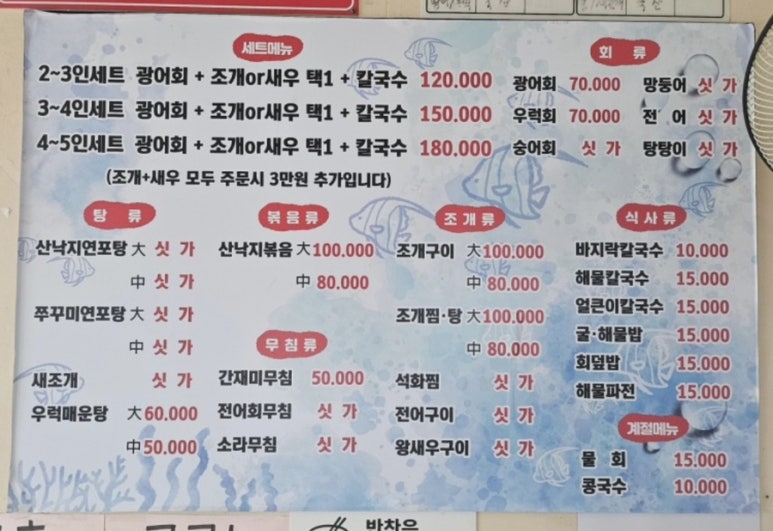 세트메뉴
2~3인세트 광어회 + 조개or새우 택1 + 칼국수 120.000
3~4인세트 광어회 + 조개or새우 택1 + 칼국수 150.000
4~5인세트 광어회 + 조개or새우 택1 + 칼국수 180.000
(조개+새우 모두 주문시 3만원 추가입니다)
회 류
광어회 70.000 망둥어 싯 가
우럭회 70.000 전 어 싯 가
숭어회 싯 가 탕탕이 싯 가
탕 류
산낙지연포탕 大 싯 가
中 싯 가
쭈꾸미연포탕 大 싯 가
中 싯 가
새조개 싯 가
우럭매운탕 大 60.000
中 50.000
볶음류
산낙지볶음 大 100.000
中 80.000
무침류
간재미무침 50.000
전어회무침 싯 가
소라무침 싯 가
조개류
조개구이 大 100.000
中 80.000
조개찜·탕 大 100.000
中 80.000
석화찜 싯 가
전어구이 싯 가
왕새우구이 싯 가
식사류
바지락칼국수 10.000
해물칼국수 15.000
얼큰이칼국수 15.000
굴·해물밥 15.000
회덮밥 15.000
해물파전 15.000
계절메뉴
물 회 15.000
콩국수 10.000